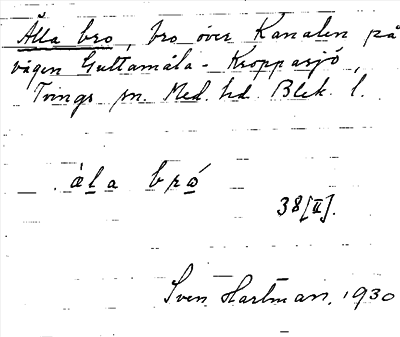 Älla bro, bro över Kanalen på
vägen Guttamåla - Kroppasjö,
Tvings sn. Med. hd. Blek. l.
ȧla brȯ
38[II].
Sven Hartman, 1930